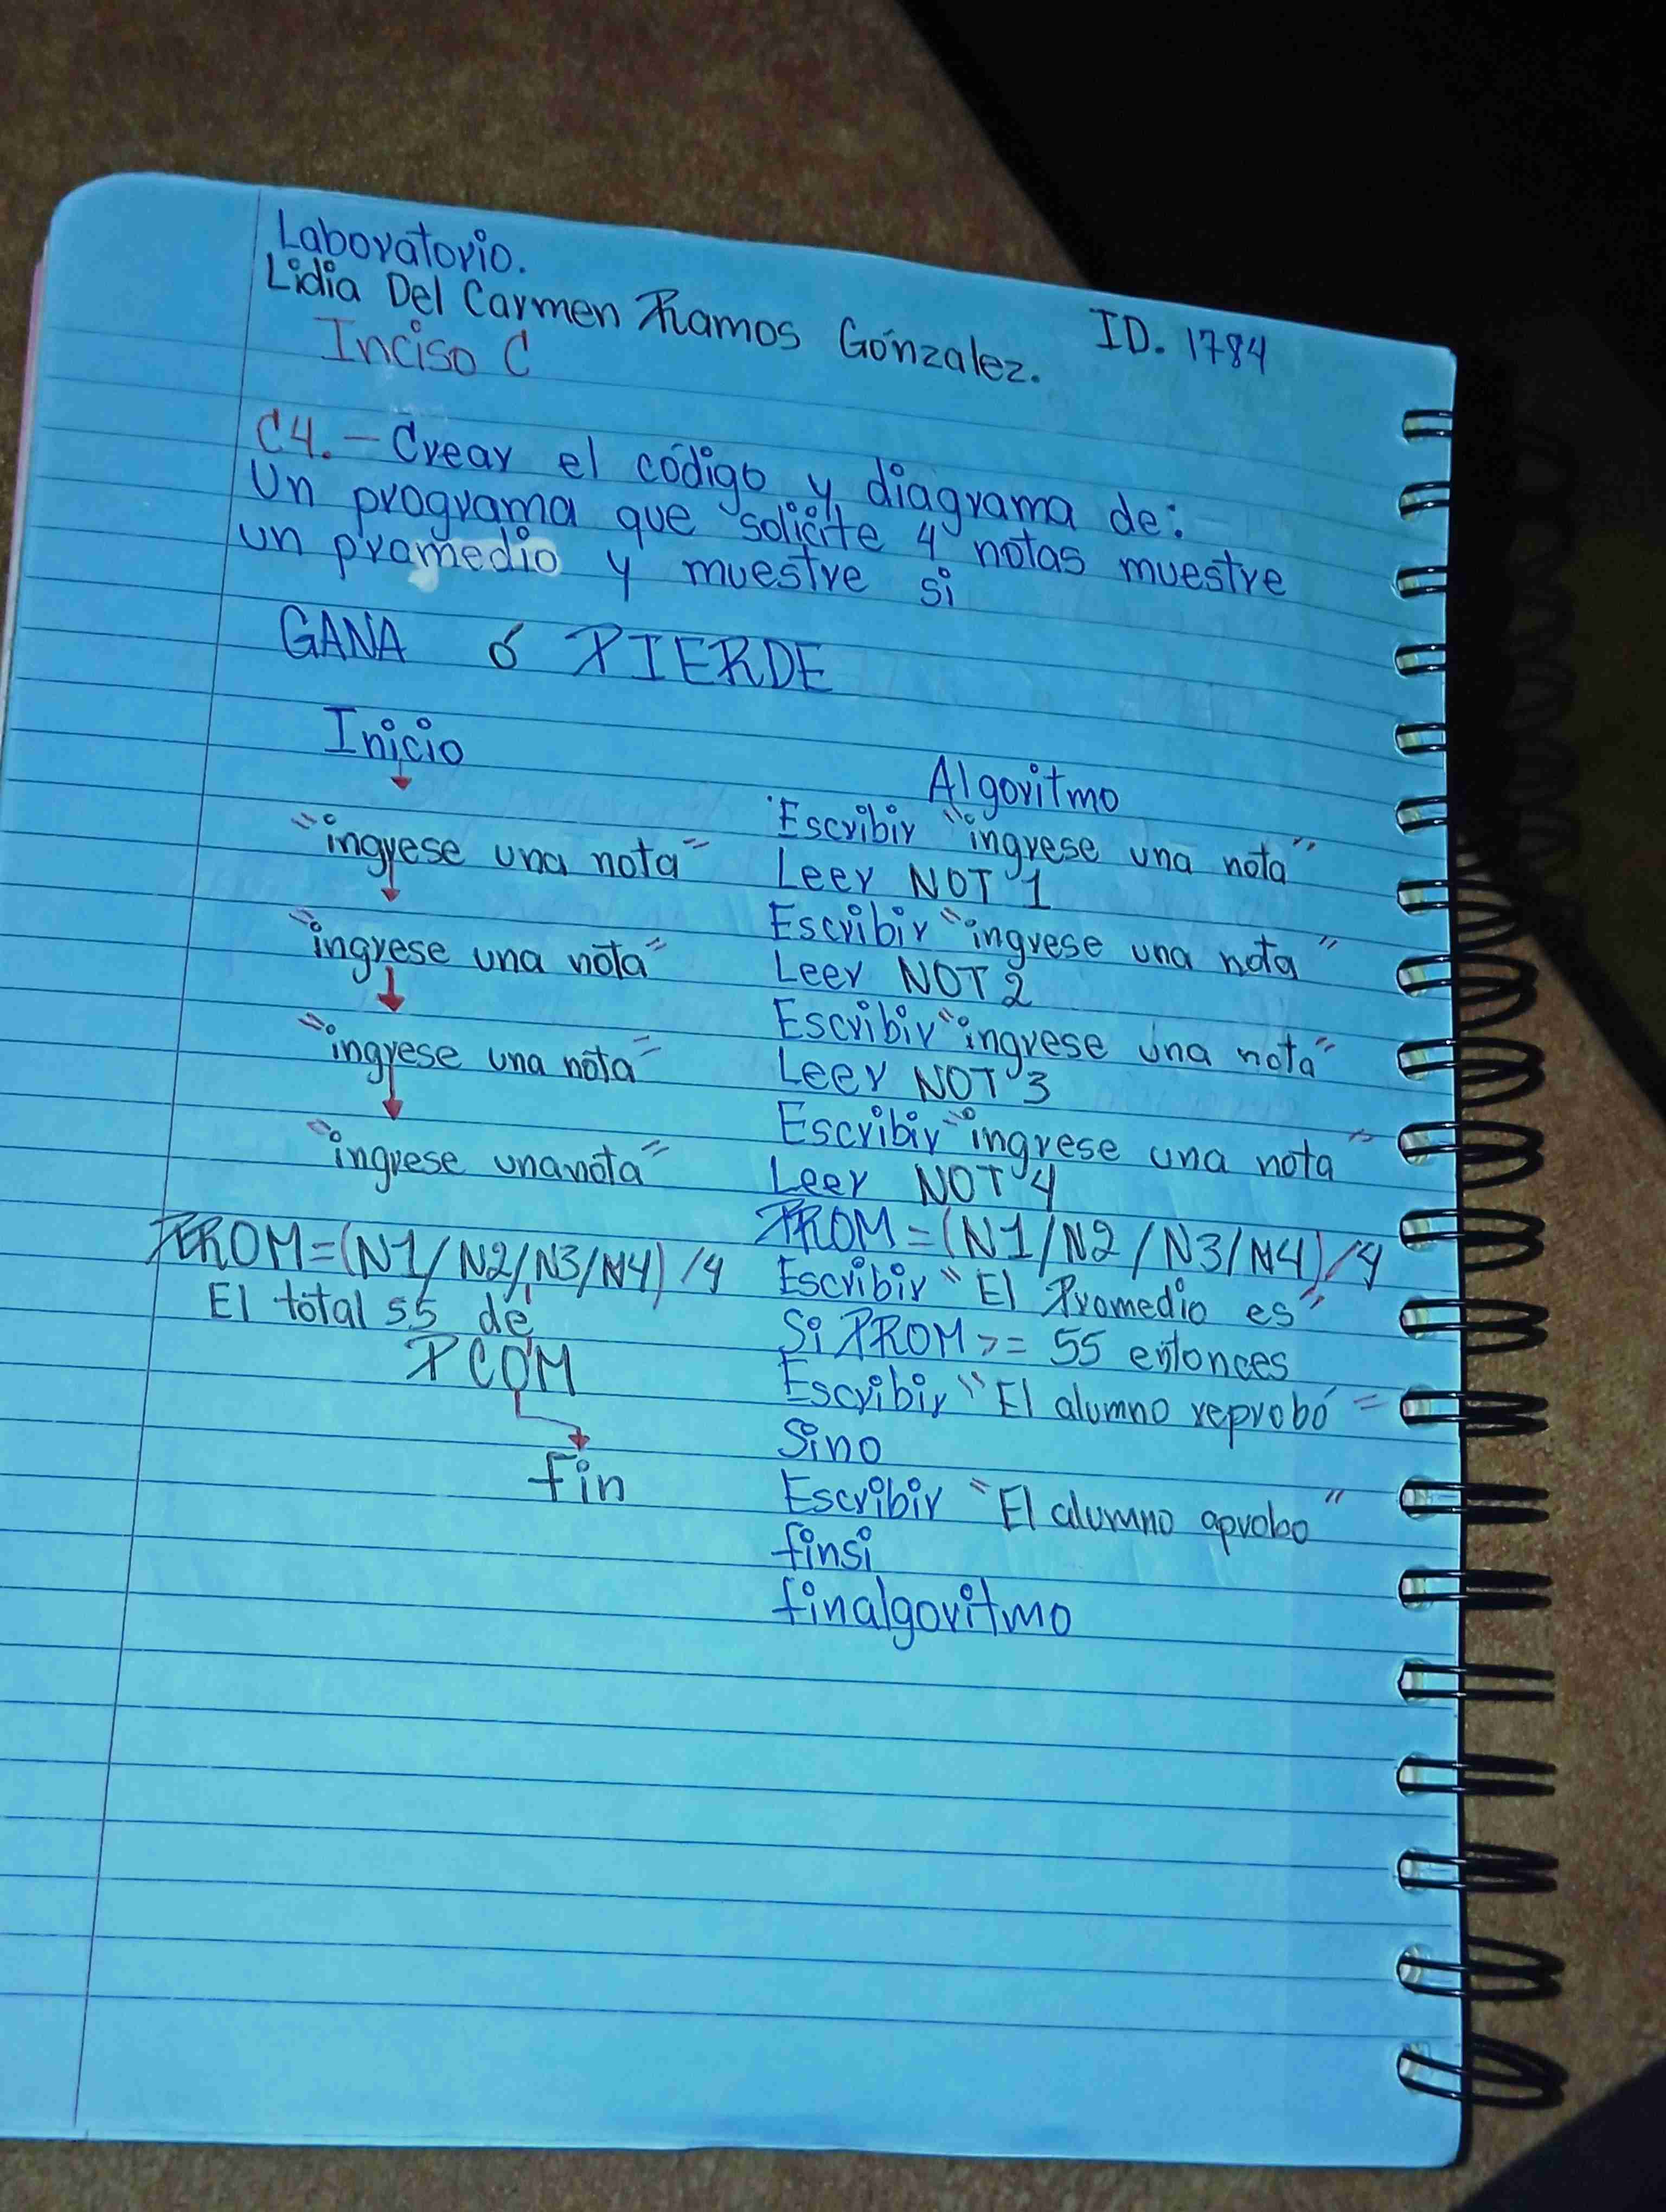 Laboratorio.
Lidia Del Carmen Ramos Gónzalez. ID. 1784
Inciso C
C4.- Crear el código y diagrama de:
Un programa que solicite 4 notas muestre
un promedio y muestre si
GANA ó PIERDE
Inicio
"ingrese una nota"
"ingrese una nota"
"ingrese una nota"
"ingrese una nota"
PROM=(N1/N2/N3/N4)/4
El total 55 de
PCOM
fin
Algoritmo
Escribir "ingrese una nota"
Leer NOT 1
Escribir "ingrese una nota"
Leer NOT 2
Escribir "ingrese una nota"
Leer NOT 3
Escribir "ingrese una nota"
Leer NOT 4
PROM=(N1/N2/N3/N4)/4
Escribir "El Promedio es"
Si PROM >= 55 entonces
Escribir "El alumno reprobó"
Sino
Escribir "El alumno aprobo"
finsi
finalgoritmo